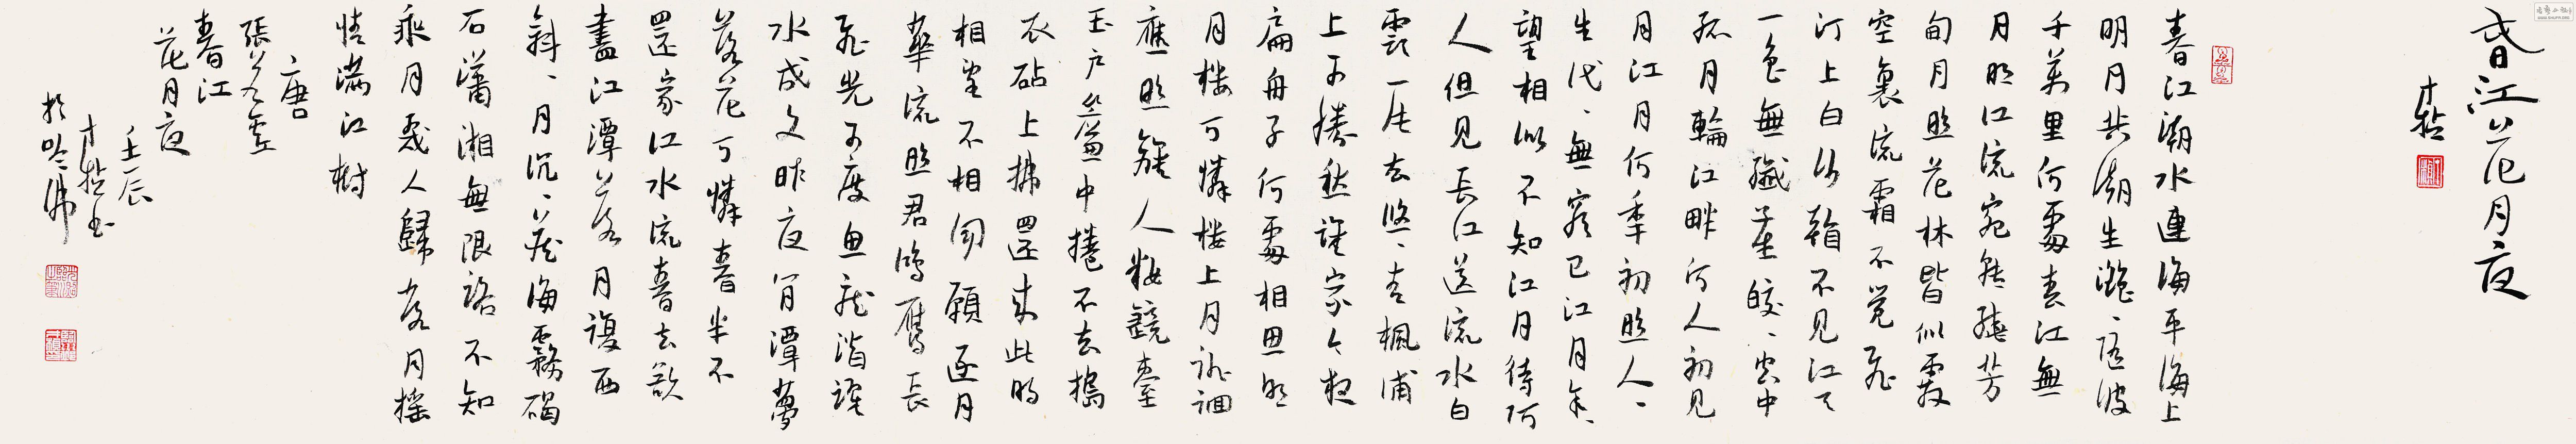 春江花月夜
才哲
春江潮水連海平海上
明月共潮生灩、隨波
千萬里何處春江無
月明江流宛轉繞芳
甸月照花林皆似霰
空裏流霜不覺飛
汀上白沙看不見江天
一色無纖塵皎、空中
孤月輪江畔何人初見
月江月何年初照人、
生代、無窮已江月年、
望相似不知江月待何
人但見長江送流水白
雲一片去悠、青楓浦
上不勝愁誰家今夜
扁舟子何處相思明
月樓可憐樓上月徘徊
應照離人粧鏡臺
玉戶簾中捲不去搗
衣砧上拂還來此時
相望不相聞願逐月
華流照君鴻雁長
飛光不度魚龍潛躍
水成文昨夜閒潭夢
落花可憐春半不
還家江水流春去欲
盡江潭落月復西
斜、月沉、藏海霧碣
石瀟湘無限路不知
乘月幾人歸落月搖
情滿江樹
唐
張若虛
春江
花月夜
壬辰
才哲書
於吟